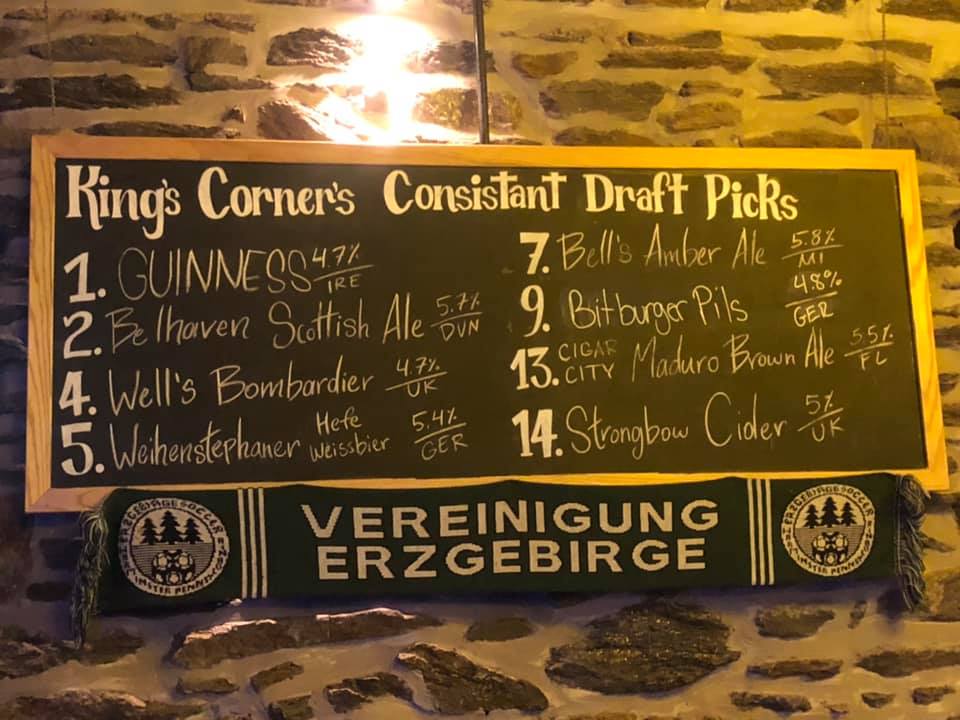 King's Corner's Consistant Draft Picks
1. GUINNESS 4.7% IRE
2. Belhaven Scottish Ale 5.7% DUN
4. Well's Bombardier 4.7% UK
5. Weihenstephaner Hefe Weissbier 5.4% GER
7. Bell's Amber Ale 5.8% MI
9. Bitburger Pils 4.8% GER
13. CIGAR CITY Maduro Brown Ale 5.5% FL
14. Strongbow Cider 5% UK
VEREINIGUNG
ERZGEBIRGE